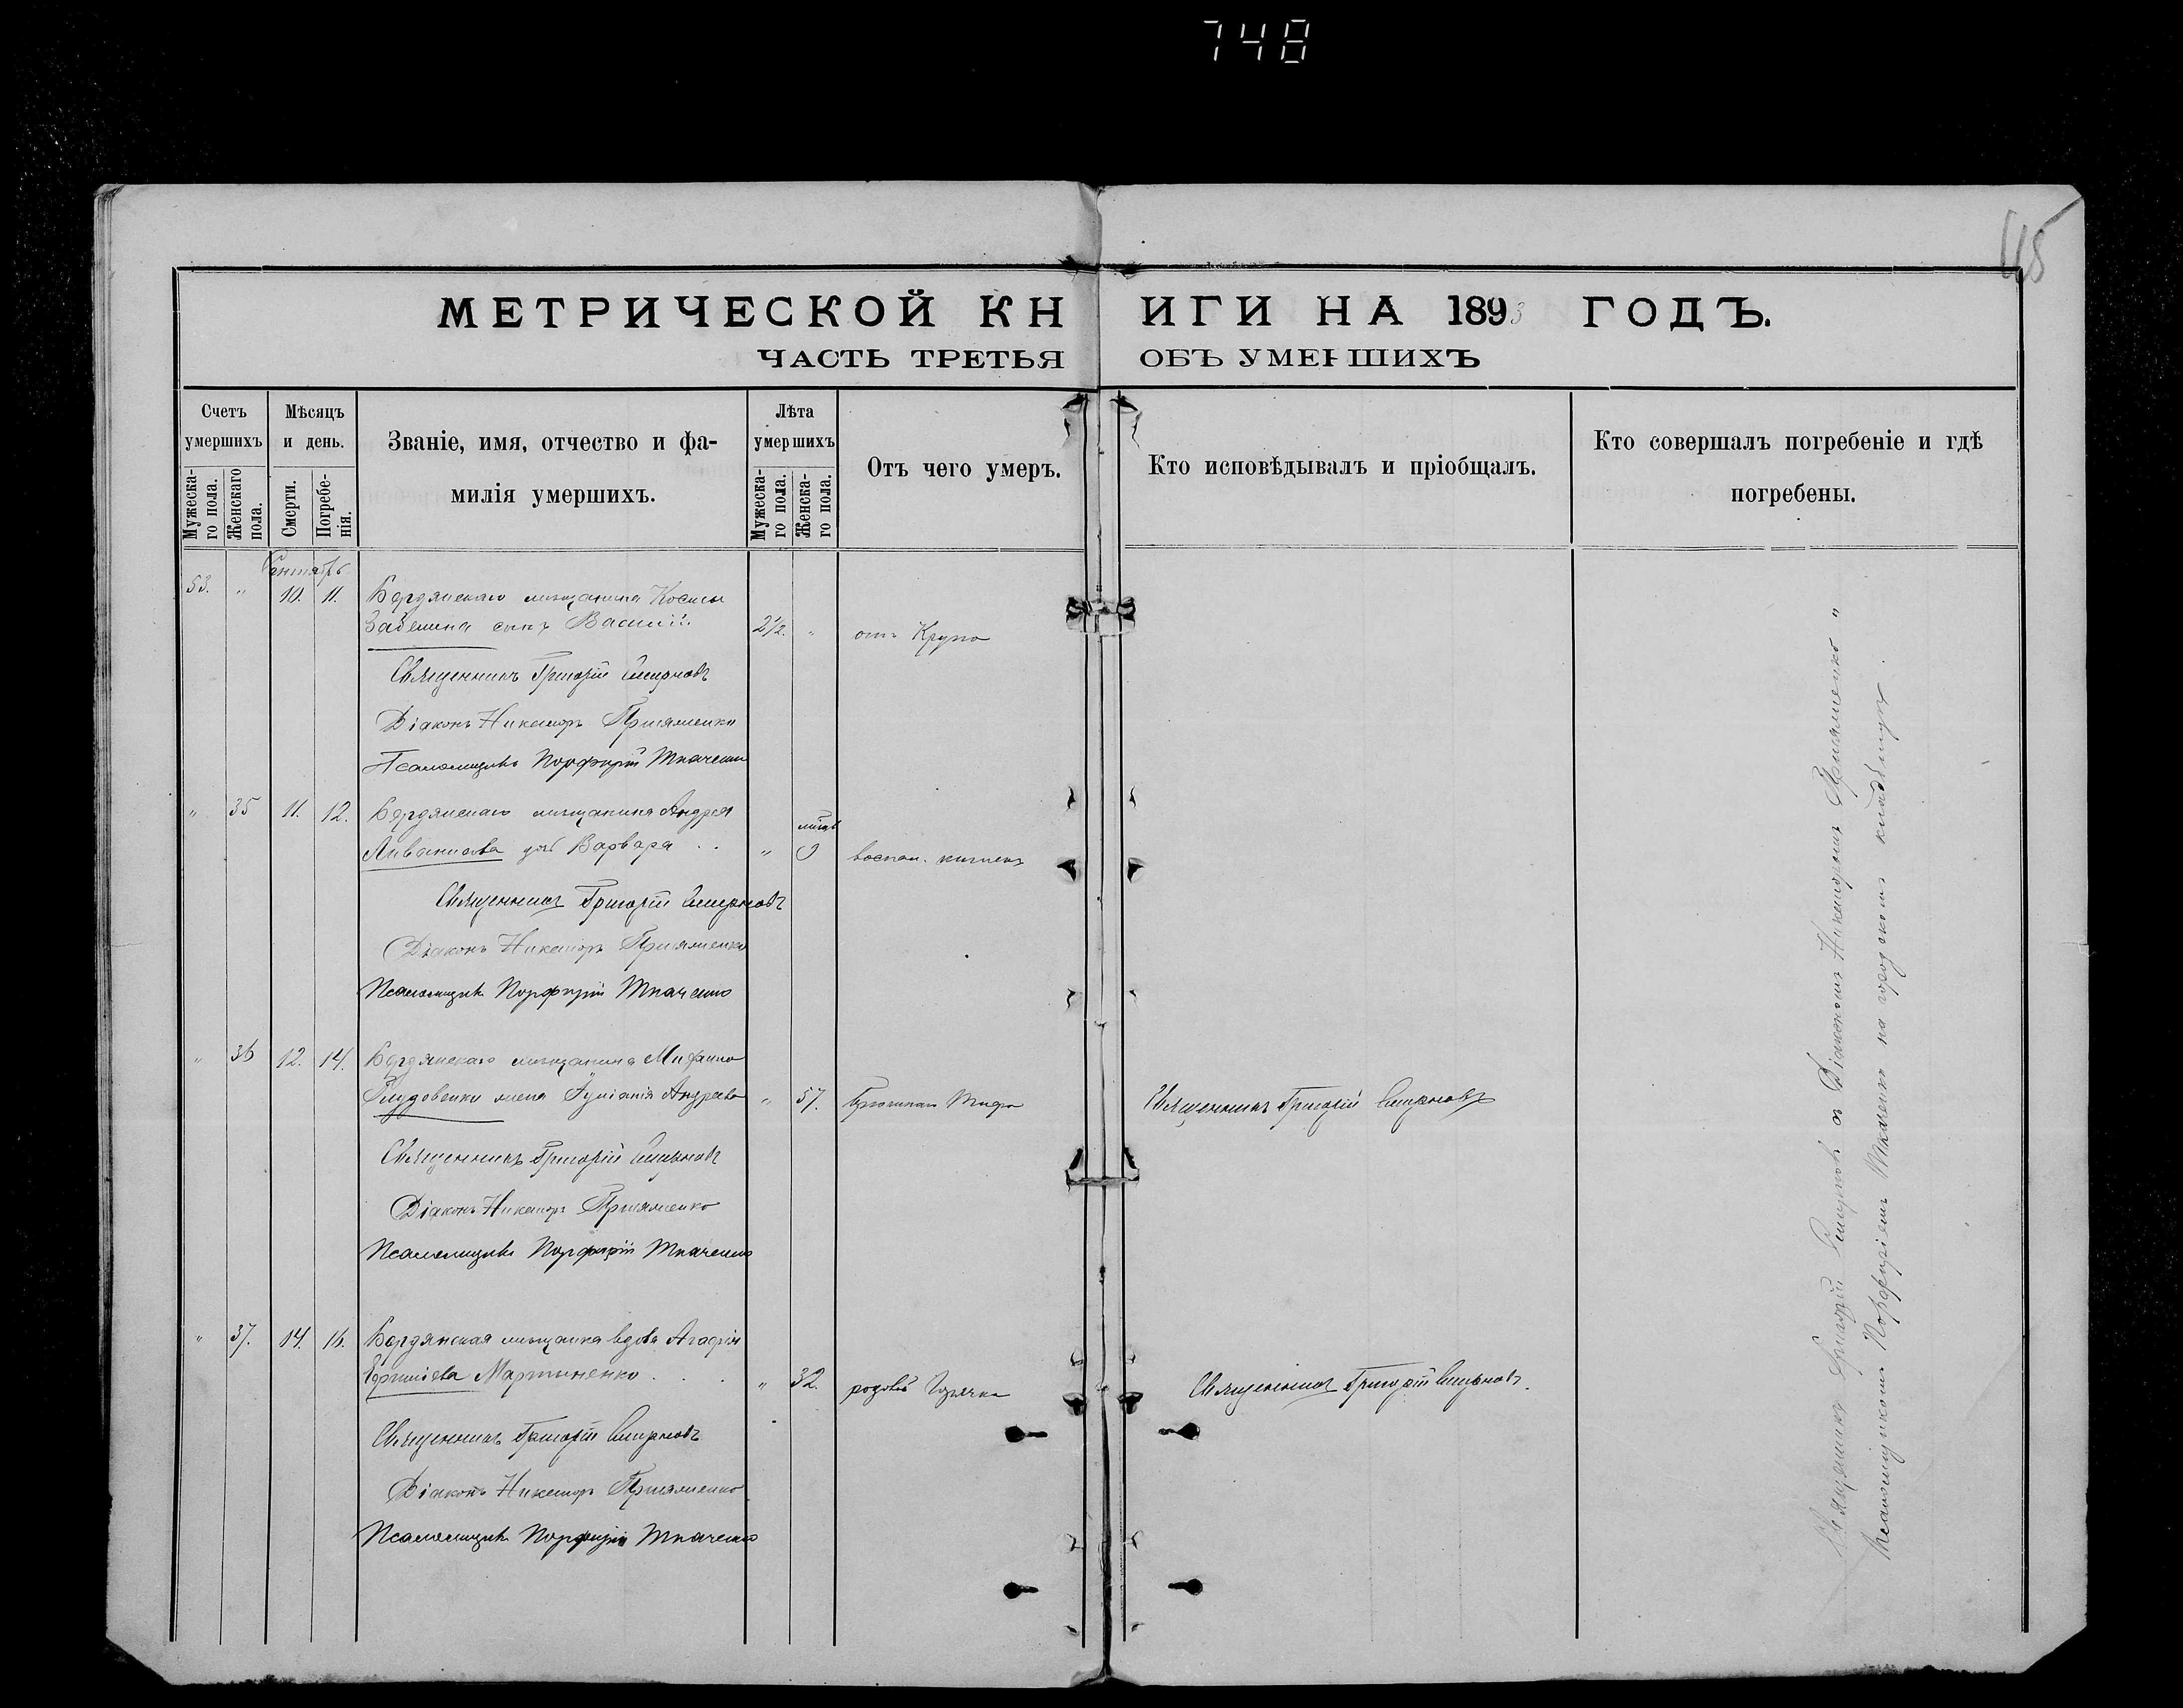 748
115
МЕТРИЧЕСКОЙ КНИГИ НА 1893 ГОДЪ.
ЧАСТЬ ТРЕТЬЯ ОБЪ УМЕРШИХЪ
Счетъ умершихъ
Мужеска-го пола.
Женскаго пола.
Мѣсяцъ и день.
Смерти.
Погребе-нія.
Званіе, имя, отчество и фа-
милія умершихъ.
Лѣта умершихъ
Мужеска-го пола.
Женска-го пола.
Отъ чего умеръ.
Кто исповѣдывалъ и пріобщалъ.
Кто совершалъ погребеніе и гдѣ
погребены.
Сентябрь
53. " 10. 11. Бердянскаго мѣщанина Космы
Забелина сынъ Василій. 2½. " отъ Крупа
Священникъ Григорій Смирновъ
Діаконъ Никаноръ
Псаломщикъ Порфирій Ткаченко
" 35 11. 12. Бердянскаго мѣщанина Андрея
дочь Варвара . . " 9 воспал. кишекъ
Священникъ Григорій Смирновъ
Діаконъ Никаноръ
Псаломщикъ Порфирій Ткаченко
" 36 12. 14. Бердянскаго мѣщанина
жена Андреева " 57. Тифа Священникъ Григорій Смирновъ
Священникъ Григорій Смирновъ
Діаконъ Никаноръ
Псаломщикъ Порфирій Ткаченко
" 37. 14. 16. Бердянская мѣщанка вдова Агафія
Мартыненко . . . " 32. Горячка Священникъ Григорій Смирновъ.
Священникъ Григорій Смирновъ
Діаконъ Никаноръ
Псаломщикъ Порфирій Ткаченко
Священникъ Григорій Смирновъ съ Діакономъ Никаноромъ "
Псаломщикомъ Порфиріемъ Ткаченко на городскомъ кладбищѣ.